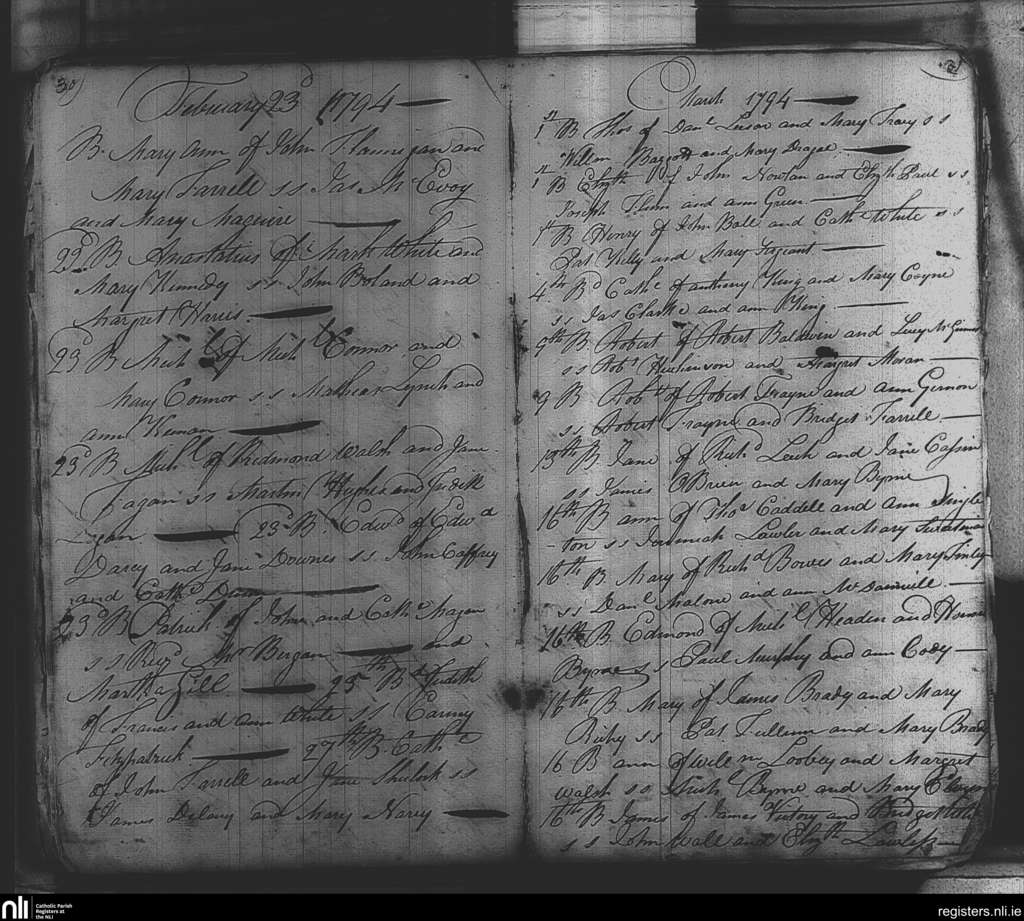 30)
February 23d 1794
B. Mary Ann of John Flannigan and
Mary Farrell ss Jas McEvoy
and Mary Maguire
23d B Anastatius of Mark White and
Mary Kennedy ss John Boland and
Margret Harris
23d B Mich.l of Mich.l Connor and
Mary Connor ss Mathew Lynch and
ann Keenan
23d B Mich.l of Redmond Walsh and Jane
Fagan ss Martin Hughes and Judith
23d B Edwd of Edwd
Darcy and Jane Downes ss John Caffrey
and Cathe Dunn
23d B Patrick of John and Cathe Magan
ss Revd Bergan and
Martha Gill 25th Bd Judith
of Francis and ann White ss
Fitzpatrick 27th B Cathe
of John Farrell and Jane ss
James Delany and Mary Narry
March 1794
1st B Thos of Danl and Mary Tracy ss
Willm Baggott and Mary
1st B Elizth of John Nowlan and Elizth Paul ss
Joseph and ann Green
1st B Henry of John Ball and Cathe White ss
Pat Kelly and Mary Sargeant
4th Bd Cathe of anthony King and Mary Coyne
ss Jas Clarke and ann King
9th B Robert of Robert Baldwin and Lucy
ss Robt and Margret Moran
9 B Robt of Robert Frayne and ann Gernon
ss Robert Frayne and Bridget Farrell
13th B Jane of Richd Leech and Jane
ss James OBrien and Mary Byrne
16th B ann of Thos Caddell and ann Single
-ton ss Jeremiah Lawler and Mary Sweetman
16th B Mary of Richd Bowes and Mary Finley
ss Danl Malone and ann
16th B Edmond of Michl Headen and
Byrne ss Paul Murphy and ann Cody
16th B Mary of James Brady and Mary
ss Pat and Mary Brady
16 B ann of Willm Loobey and Margret
Walsh ss Michl Byrne and Mary
16th B James of James Victory and Bridget
ss John Wall and Elizth Lawless
nli
Catholic Parish
Registers at
the NLI
registers.nli.ie